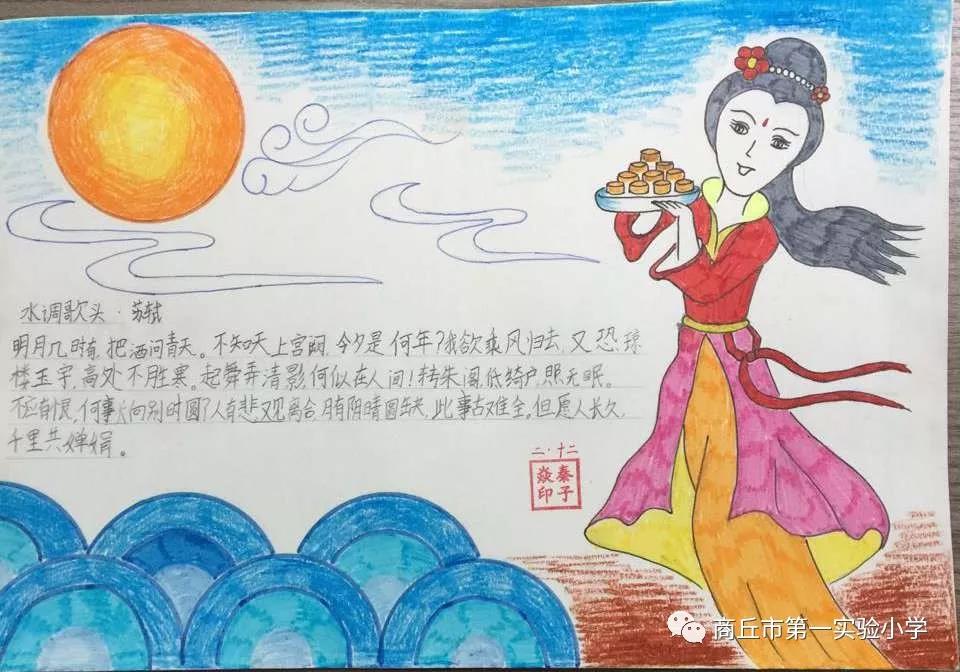 水调歌头·苏轼
明月几时有,把酒问青天。不知天上宫阙,今夕是何年?我欲乘风归去,又恐琼
楼玉宇,高处不胜寒。起舞弄清影,何似在人间!转朱阁,低绮户,照无眠。
不应有恨,何事长向别时圆?人有悲欢离合,月有阴晴圆缺,此事古难全。但愿人长久,
千里共婵娟。
二·十二
秦子
焱印
商丘市第一实验小学